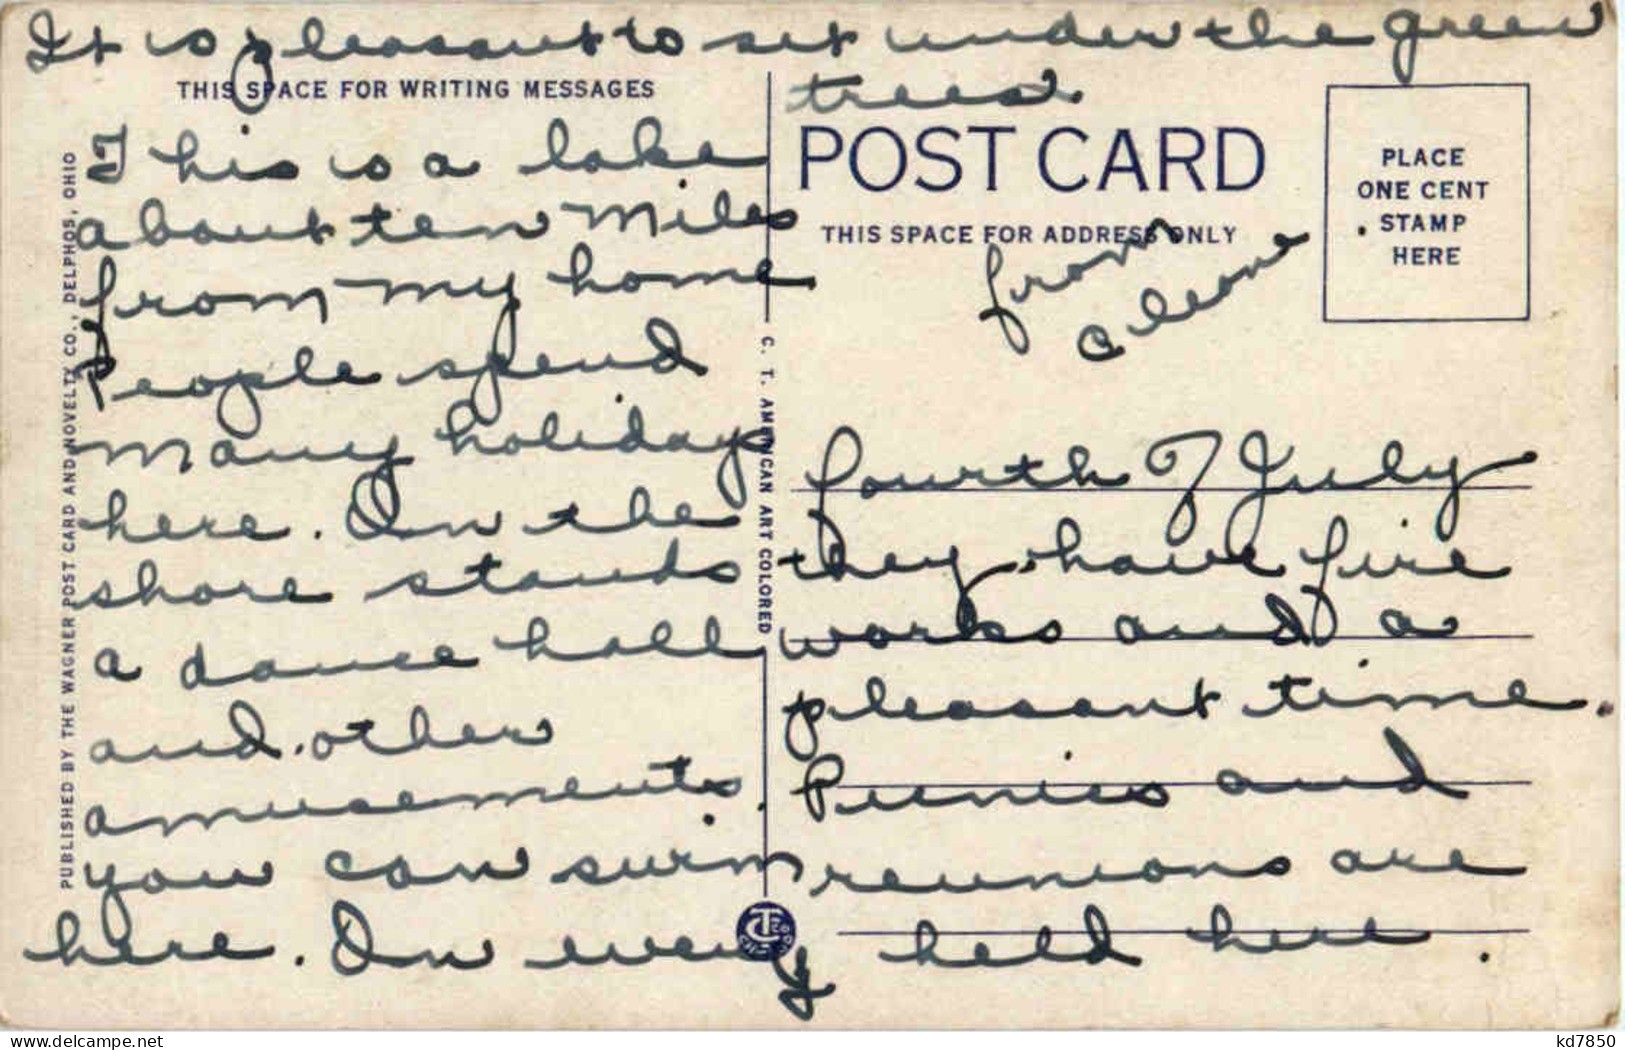 It is pleasant to set under the green
trees.
THIS SPACE FOR WRITING MESSAGES
This is a lake
about ten miles
from my home
People spend
many holiday
here. On the
shore stands
a dance hall
and other
amusements.
you can swim
here. On every
POST CARD
THIS SPACE FOR ADDRESS ONLY
PLACE
ONE CENT
STAMP
HERE
from
Cleone
fourth of July
they have fire
works and a
pleasant time.
Picnics and
reunions are
held here.
PUBLISHED BY THE WAGNER POST CARD AND NOVELTY CO., DELPHOS, OHIO
C. T. AMERICAN ART COLORED
kd7850